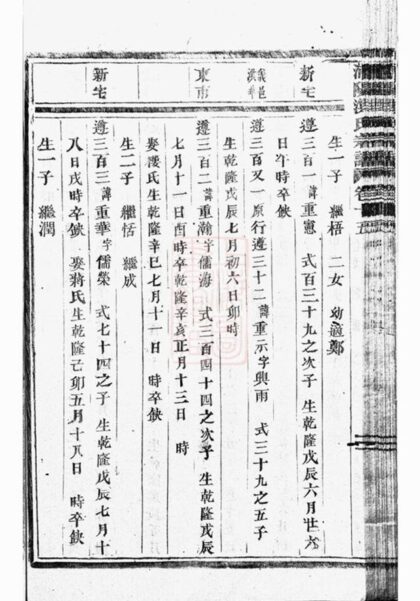 生一子 繼梧 二女 幼適鄭
新宅
遵三百一 諱重憲 式百三十九之次子 生乾隆戊辰六月廿六
日午時卒缺
義邑
遵三百又一原行遵三十二 諱重示字興雨 式三十九之五子
生乾隆戊辰七月初六日卯時
東市
遵三百二 諱重瀚字儒海 式三百四十四之次子 生乾隆戊辰
七月十一日酉時卒乾隆辛亥正月十三日 時
娶淩氏生乾隆辛巳七月十一日 時卒缺
生二子 繼恬 繼成
新宅
遵三百三 諱重華字儒榮 式七十四之子 生乾隆戊辰七月十
八日戌時卒缺 娶蔣氏生乾隆己卯五月十八日 時卒缺
生一子 繼潤